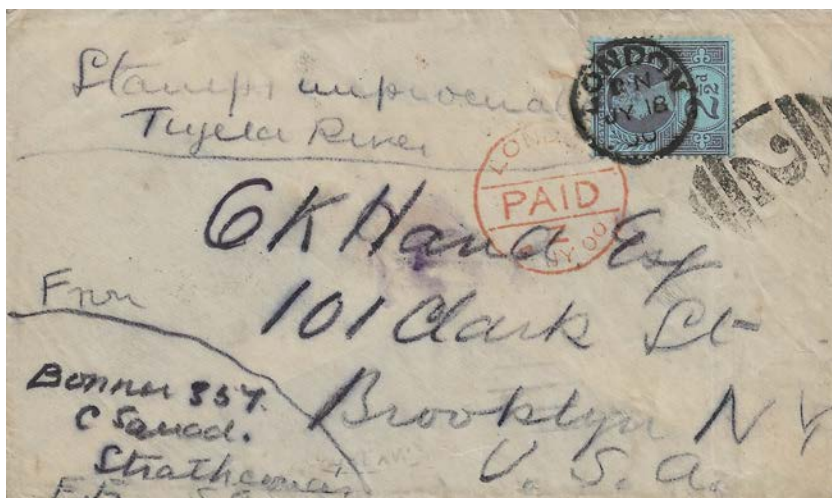 Stamps
Tugela River
LONDON
JY 18
00
2½d
2
PAID
JY 00
G K Hand Esq
101 Clark St
Brooklyn N Y
U. S. A.
From
Bonner 357.
C Squad.
Strathconas